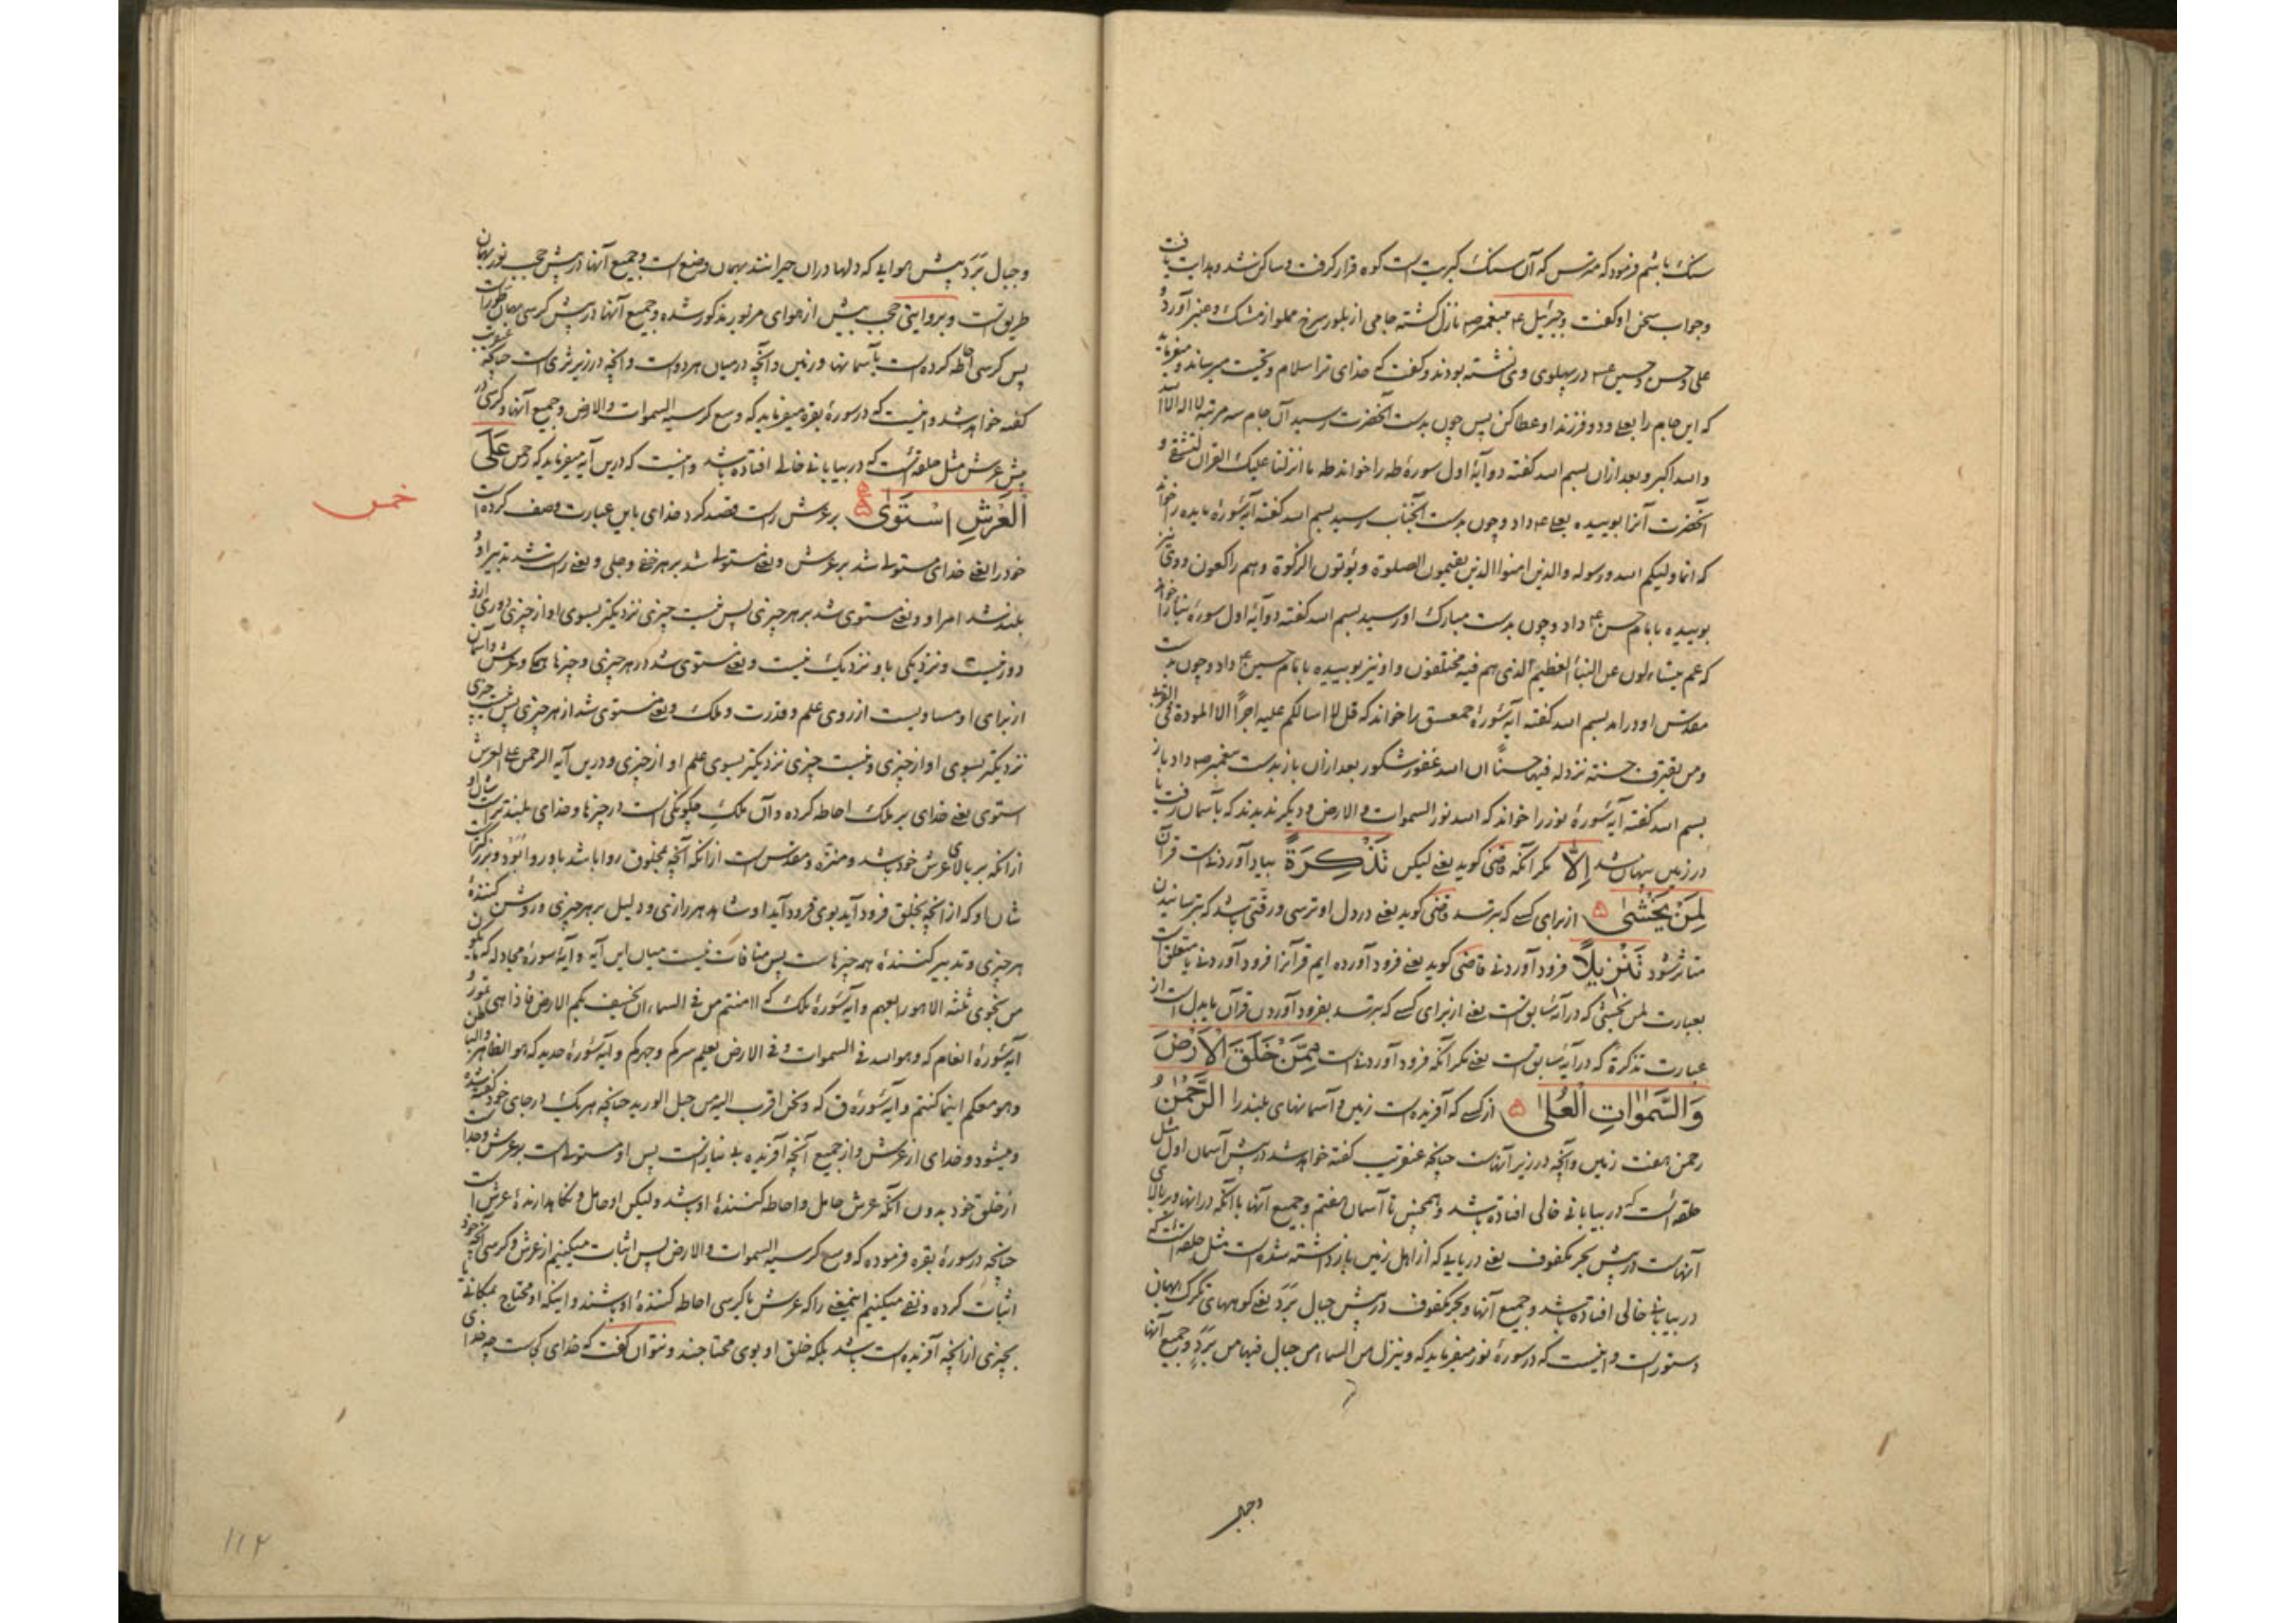 سنک باشم فرمود که مترس که آن سنک کبریت است کوه قرار کرفت و ساکن شد و بدایت یافت
و جواب سخن او کفت و جبرئیل ع م بپیغمبر ص نازل کشته جامی از بلور سرخ مملو از مشک و عنبر آورد و
علی و حسن و حسین ع م در پهلوی وی نشسته بودند و کفت که خدای ترا سلام و تحیت میرساند و میفرماید
که این جام را بعلی و دو فرزند او عطا کن پس چون بدست آنحضرت رسید آن جام سه مرتبه لا اله الا الله
و الله اکبر و بعد ازان بسم الله کفته دو آیۀ اول سورۀ طه را خواند طه ما انزلنا علیک القران لتشقی و
آنحضرت آنرا بوییده بعلی ع م داد و چون بدست آنجناب رسید بسم الله کفته آیۀ سورۀ مایده را خواند
که انما ولیکم الله و رسوله و الذین امنوا الذین یقیمون الصلوة و یؤتون الزکوة و هم راکعون و وی نیز
بوییده بامام حسن ع داد و چون بدست مبارک او رسید بسم الله کفته دو آیۀ اول سورۀ نبا را خواند
که عم یتساءلون عن النبأ العظیم الذی هم فیه مختلفون و او نیز بوییده بامام حسین ع داد و چون بدست
مقدس او درامد بسم الله کفته آیۀ سورۀ حمعسق را خواند که قل لا اسالکم علیه اجرًا الا المودة فی القربی
و من یقترف حسنة نزد له فیها حسنًا ان الله غفور شکور بعد ازان باز بدست پیغمبر ص داد باز
بسم الله کفته آیۀ سورۀ نور را خواند که الله نور السموات و الارض و دیکر ندیدند که بآسمان رفت یا
در زمین پنهان شد إِلَّا مکر آنکه قاضی کوید یعنی لیکن تَذْكِرَةً بیاد آوردنست قرآن
لِمَنْ يَخْشَىٰ ۵ از برای کسی که بترسد قاضی کوید یعنی در دل او ترسی و رقتی باشد که بترسانیدن
متاثر شود تَنْزِيلًا فرود آوردنی قاضی کوید یعنی فرود آورده ایم قرآنرا فرود آوردنی یا متعلق است
بعبارت لمن یخشی که در آیۀ سابق است یعنی از برای کسی که بترسد بفرود آوردن قرآن یا بدل است از
عبارت تذکرة که در آیۀ سابق است یعنی مکر آنکه فرود آوردنی است مِمَّنْ خَلَقَ الْأَرْضَ
وَالسَّمَوَاتِ الْعُلَىٰ ۵ از کسی که آفریده است زمین و آسمانهای بلند را الرَّحْمَٰنُ و
رحمن هفت زمین و آنچه در زیر آنهاست چنانکه عنقریب کفته خواهد شد در پیش آسمان اول مثل
حلقه ایست که در بیابانی خالی افتاده باشد و همچنین تا آسمان هفتم و جمیع آنها با آنکه در انها و بر بالای
آنهاست در پیش بحر مکفوف یعنی دریایی که از اهل زمین بازداشته شده است مثل حلقه ایست که
در بیابانی خالی افتاده باشد و جمیع آنها و بحر مکفوف در پیش جبال بَرَد یعنی کوههای تکرک بهمان
دستور است و اینست که در سورۀ نور میفرماید که و ینزل من السماء من جبال فیها من بَرَدٍ و جمیع آنها
و جبال
و جبال بَرَد پیش هوایی که دلها دران حیرانند بهمان وضع است و جمیع آنها در پیش حجب نور بهمان
طریق است و بروایتی حجب پیش از هوای مزبور مذکور شده و جمیع آنها در پیش کرسی بهمان طورست
پس کرسی احاطه کرده است بآسمانها و زمین و آنچه در میان هر دو است و آنچه در زیر ثری است چنانکه عنقریب
کفته خواهد شد و اینست که در سورۀ بقره میفرماید که وسع کرسیه السموات و الارض و جمیع آنها و کرسی در
پیش عرش مثل حلقه ایست که در بیابانی خالی افتاده باشد و اینست که درین آیه میفرماید که رحمن عَلَى
الْعَرْشِ اسْتَوَىٰ ۵ بر عرش راست قصد کرد خدای باین عبارت وصف کرده است
خمس
خود را یعنی خدای مستولی شد بر عرش و یعنی مستولی شد بر هر خفی و جلی و یعنی راست شد تدبیر او و
بلند شد امر او و یعنی مستوی شد بر هر چیزی پس نیست چیزی نزدیکتر بسوی او از چیزی دوری ازو
دور نیست و نزدیکی باو نزدیک نیست و یعنی مستوی شد در هر چیزی و چیزها همه و عرش و آسمان
از برای او مساویست از روی علم و قدرت و ملک و یعنی مستوی شد از هر چیزی پس نیست چیزی
نزدیکتر بسوی او از چیزی و نیست چیزی نزدیکتر بسوی علم او از چیزی و درین آیه الرحمن علی العرش
استوی یعنی خدای بر ملک احاطه کرده و آن ملکِ چکونکی است در چیزها و خدای بلندتر است شان او
از آنکه بر بالای عرش خود باشد و منزه و مقدس است از آنکه آنچه بمخلوق روا باشد باو روا بود و بزرکتر است
شان او که از آنچه بخلق فرود آید بوی فرود آید او شاهد هر رازی و دلیل بر هر چیزی و روشن کنندۀ
هر چیزی و تدبیر کنندۀ همه چیزهاست پس منافات نیست میان این آیه و آیۀ سورۀ مجادله که ما یکون
من نجوی ثلثة الا هو رابعهم و آیۀ سورۀ ملک که اامنتم من فی السماء ان یخسف بکم الارض فاذا هی تمور و
آیۀ سورۀ انعام که و هو الله فی السموات و فی الارض یعلم سرکم و جهرکم و آیۀ سورۀ حدید که هو الظاهر و الباطن
و هو معکم اینما کنتم و آیۀ سورۀ ق که و نحن اقرب الیه من حبل الورید چنانکه هر یک در جای خود کفته شده
و میشود و خدای از عرش و از جمیع آنچه آفریده بی نیازست پس او مستولی است بر عرش و جدا
از خلق خود بدون آنکه عرش حامل و احاطه کنندۀ او باشد و لیکن او حامل و نکاهدارندۀ عرش است
چنانچه در سورۀ بقره فرموده که وسع کرسیه السموات و الارض پس اثبات میکنیم از عرش و کرسی آنچه خود
اثبات کرده و نفی میکنیم اینمعنی را که عرش یا کرسی احاطه کنندۀ او باشند و اینکه او محتاج بمکانی یا
بچیزی از آنچه آفریده است باشد بلکه خلق او بوی محتاجند و نتوان کفت که خدای کجاست چه خدای
۱۱۲